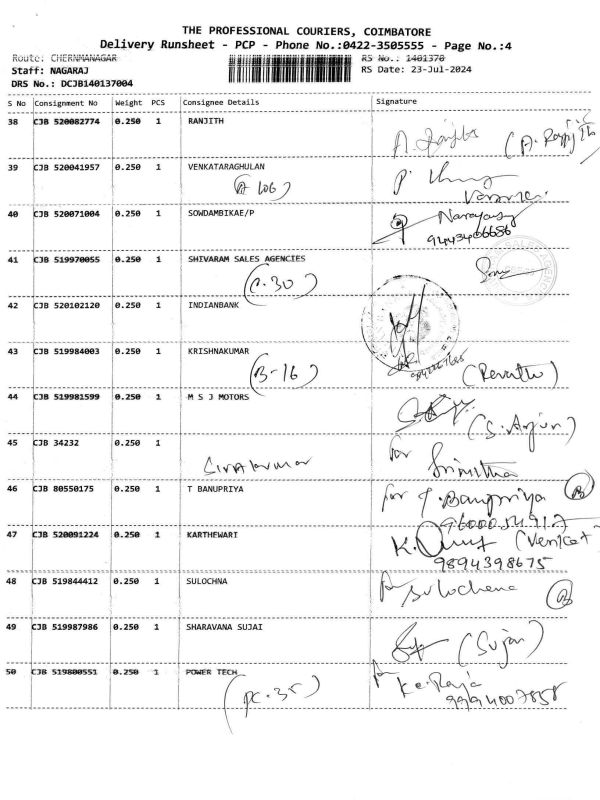 THE PROFESSIONAL COURIERS, COIMBATORE
Delivery Runsheet - PCP - Phone No.:0422-3505555 - Page No.:4
Route: CHERNMANAGAR
RS No.: 1401370
Staff: NAGARAJ
RS Date: 23-Jul-2024
DRS No.: DCJB140137004
S No Consignment No Weight PCS Consignee Details Signature
38 CJB 520082774 0.250 1 RANJITH
39 CJB 520041957 0.250 1 VENKATARAGHULAN
(A 106)
40 CJB 520071004 0.250 1 SOWDAMBIKAE/P Narayasy
9443406686
41 CJB 519970055 0.250 1 SHIVARAM SALES AGENCIES
(C.30)
42 CJB 520102120 0.250 1 INDIANBANK
43 CJB 519984003 0.250 1 KRISHNAKUMAR
(B-16) (Revathi)
44 CJB 519981599 0.250 1 M S J MOTORS
(S. Arjun)
45 CJB 34232 0.250 1
for
46 CJB 80550175 0.250 1 T BANUPRIYA for T. Banupriya (B)
47 CJB 520091224 0.250 1 KARTHEWARI
9894398675
48 CJB 519844412 0.250 1 SULOCHNA Sulochena
49 CJB 519987986 0.250 1 SHARAVANA SUJAI (Sujai)
50 CJB 519800551 0.250 1 POWER TECH K.C. Raja
(PC.35) 9994007858